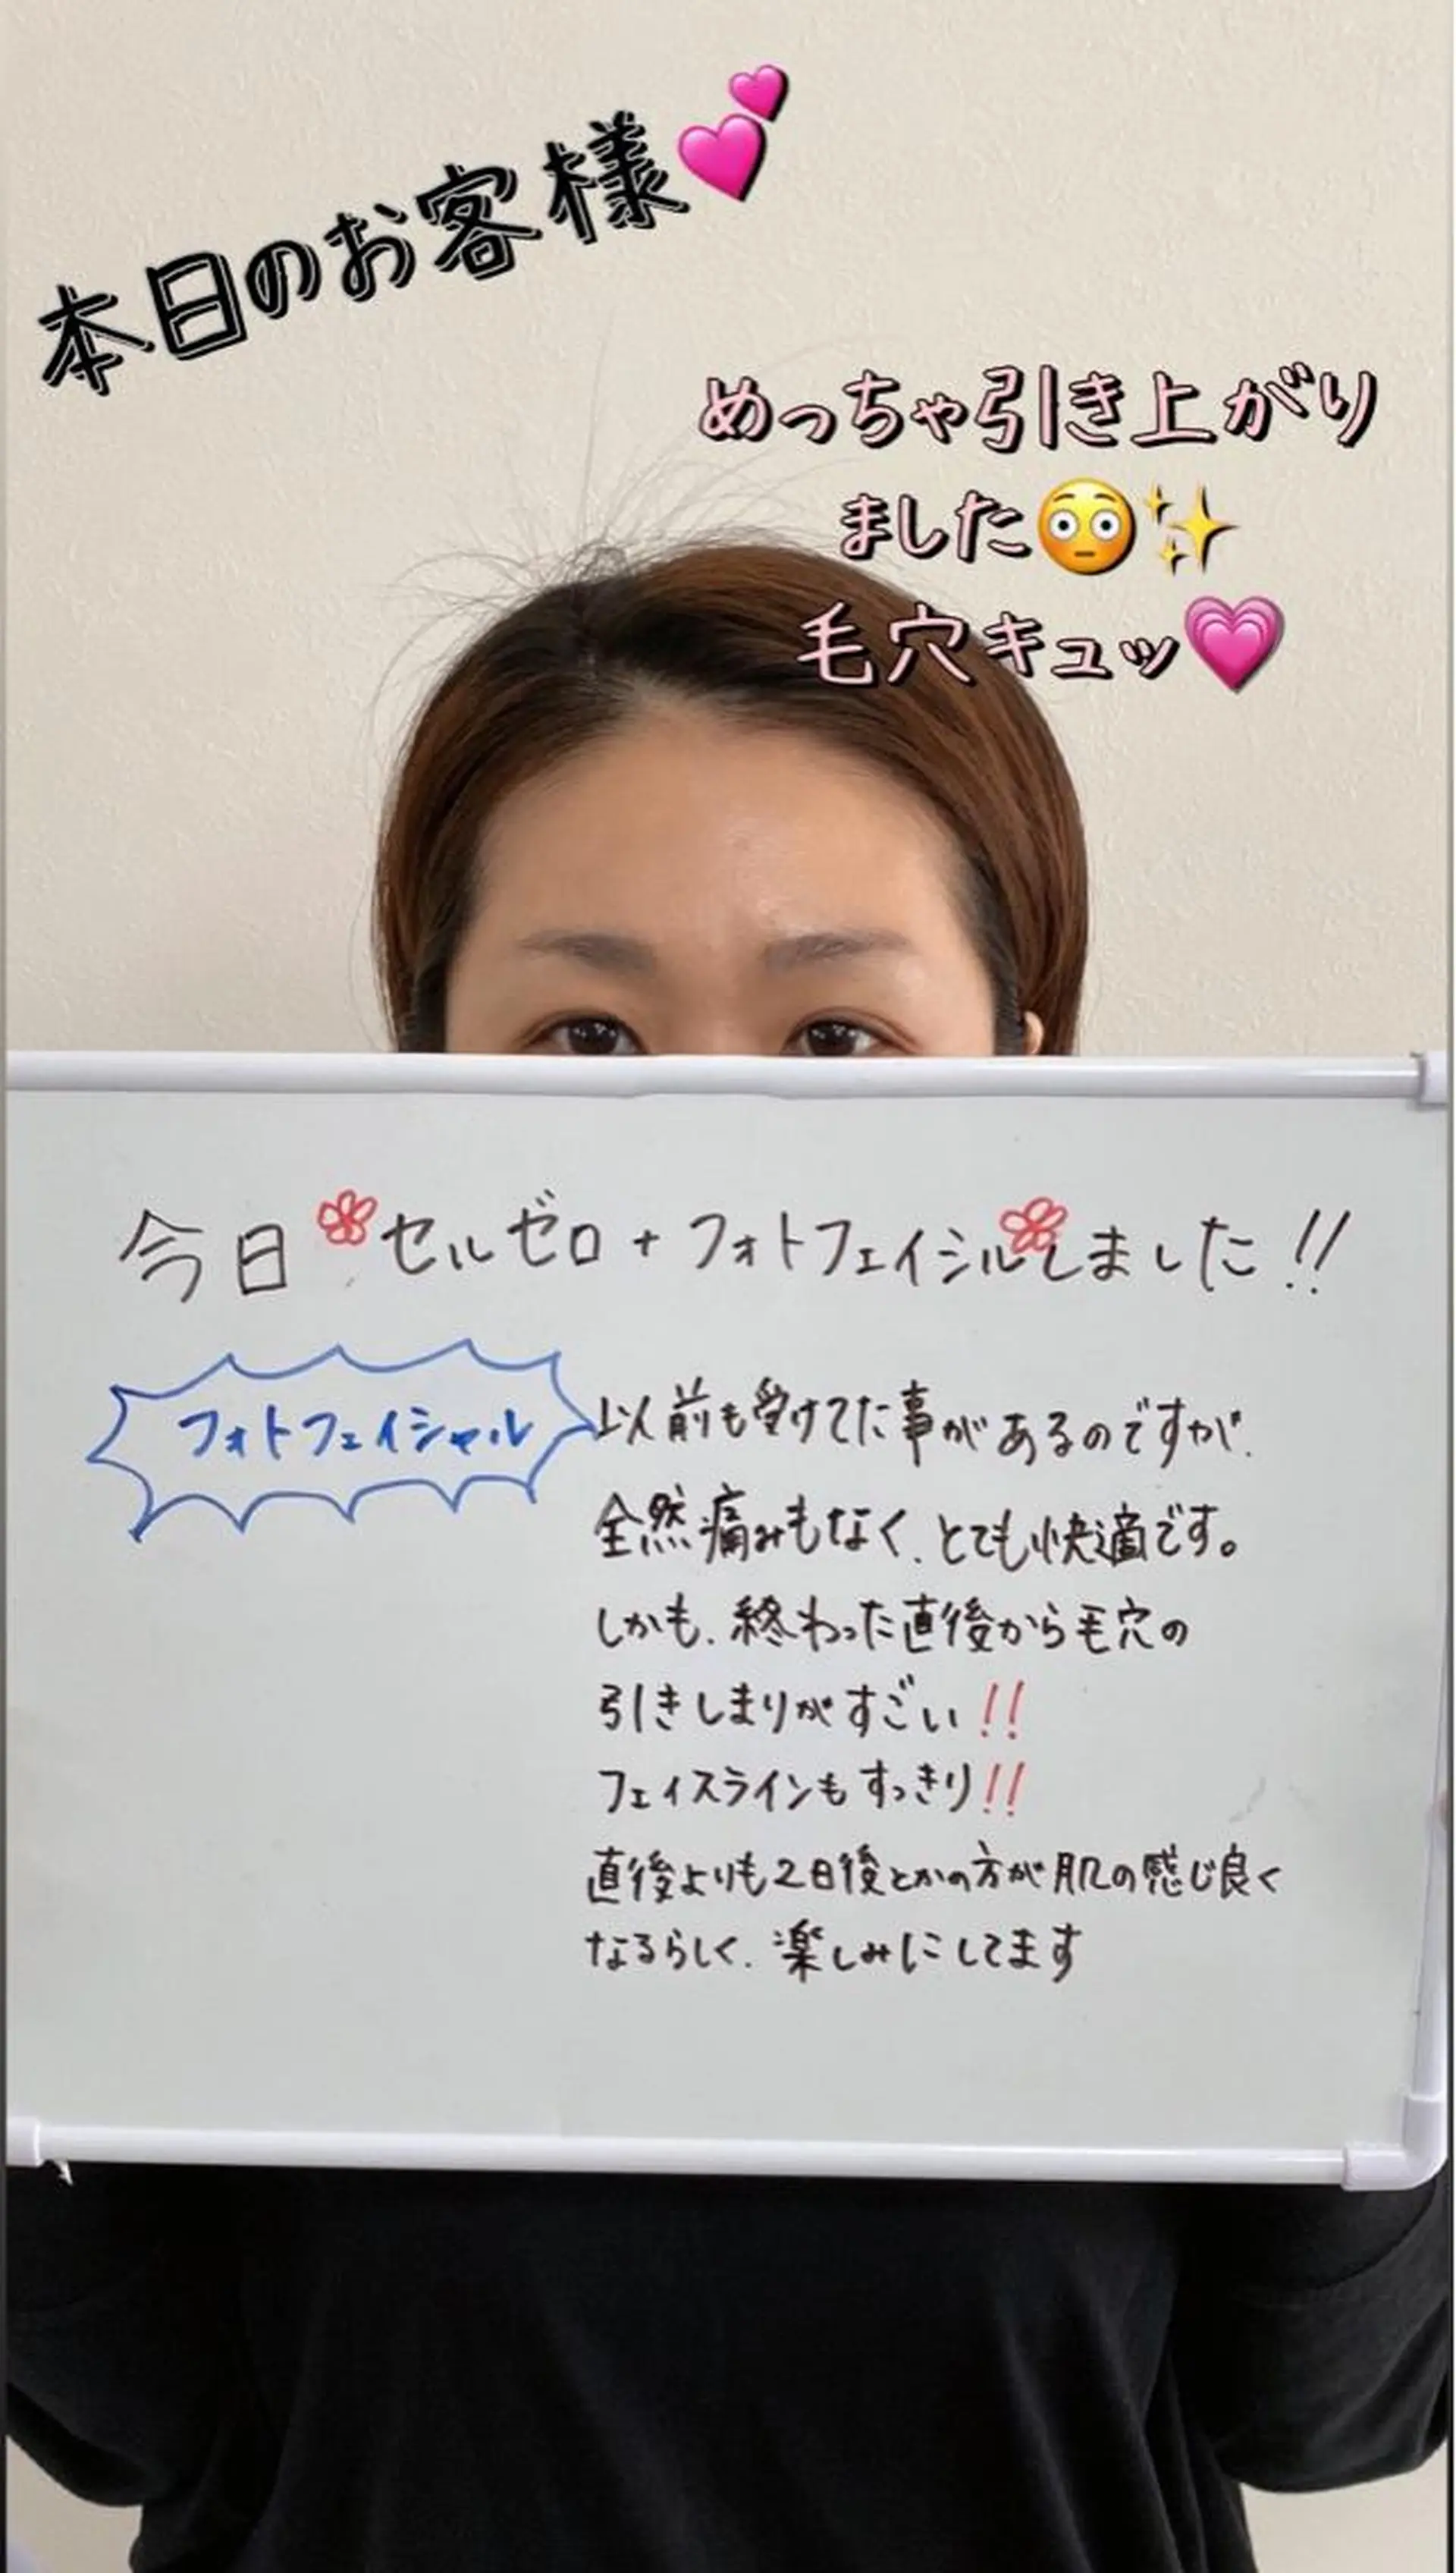 本日のお客様💕
めっちゃ引き上がり
ました😳✨
毛穴キュッ💗
今日セルゼロ+フォトフェイシルしました!!
フォトフェイシャル
以前も受けてた事があるのですが、
全然痛みもなく、とても快適です。
しかも、終わった直後から毛穴の
引きしまりがすごい!!
フェイスラインもすっきり!!
直後よりも2日後とかの方が肌の感じ良く
なるらしく、楽しみにしてます